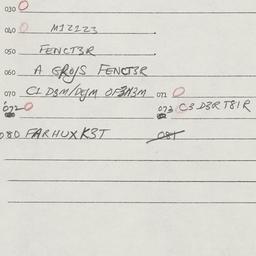 030
040 M12123
050 FENCT3R
060 A GROJS FENCT3R
070 CLD3M/DGJM OF3M3M 071
072 073 C3 D3RT81R
080 FARHUXK3T 081